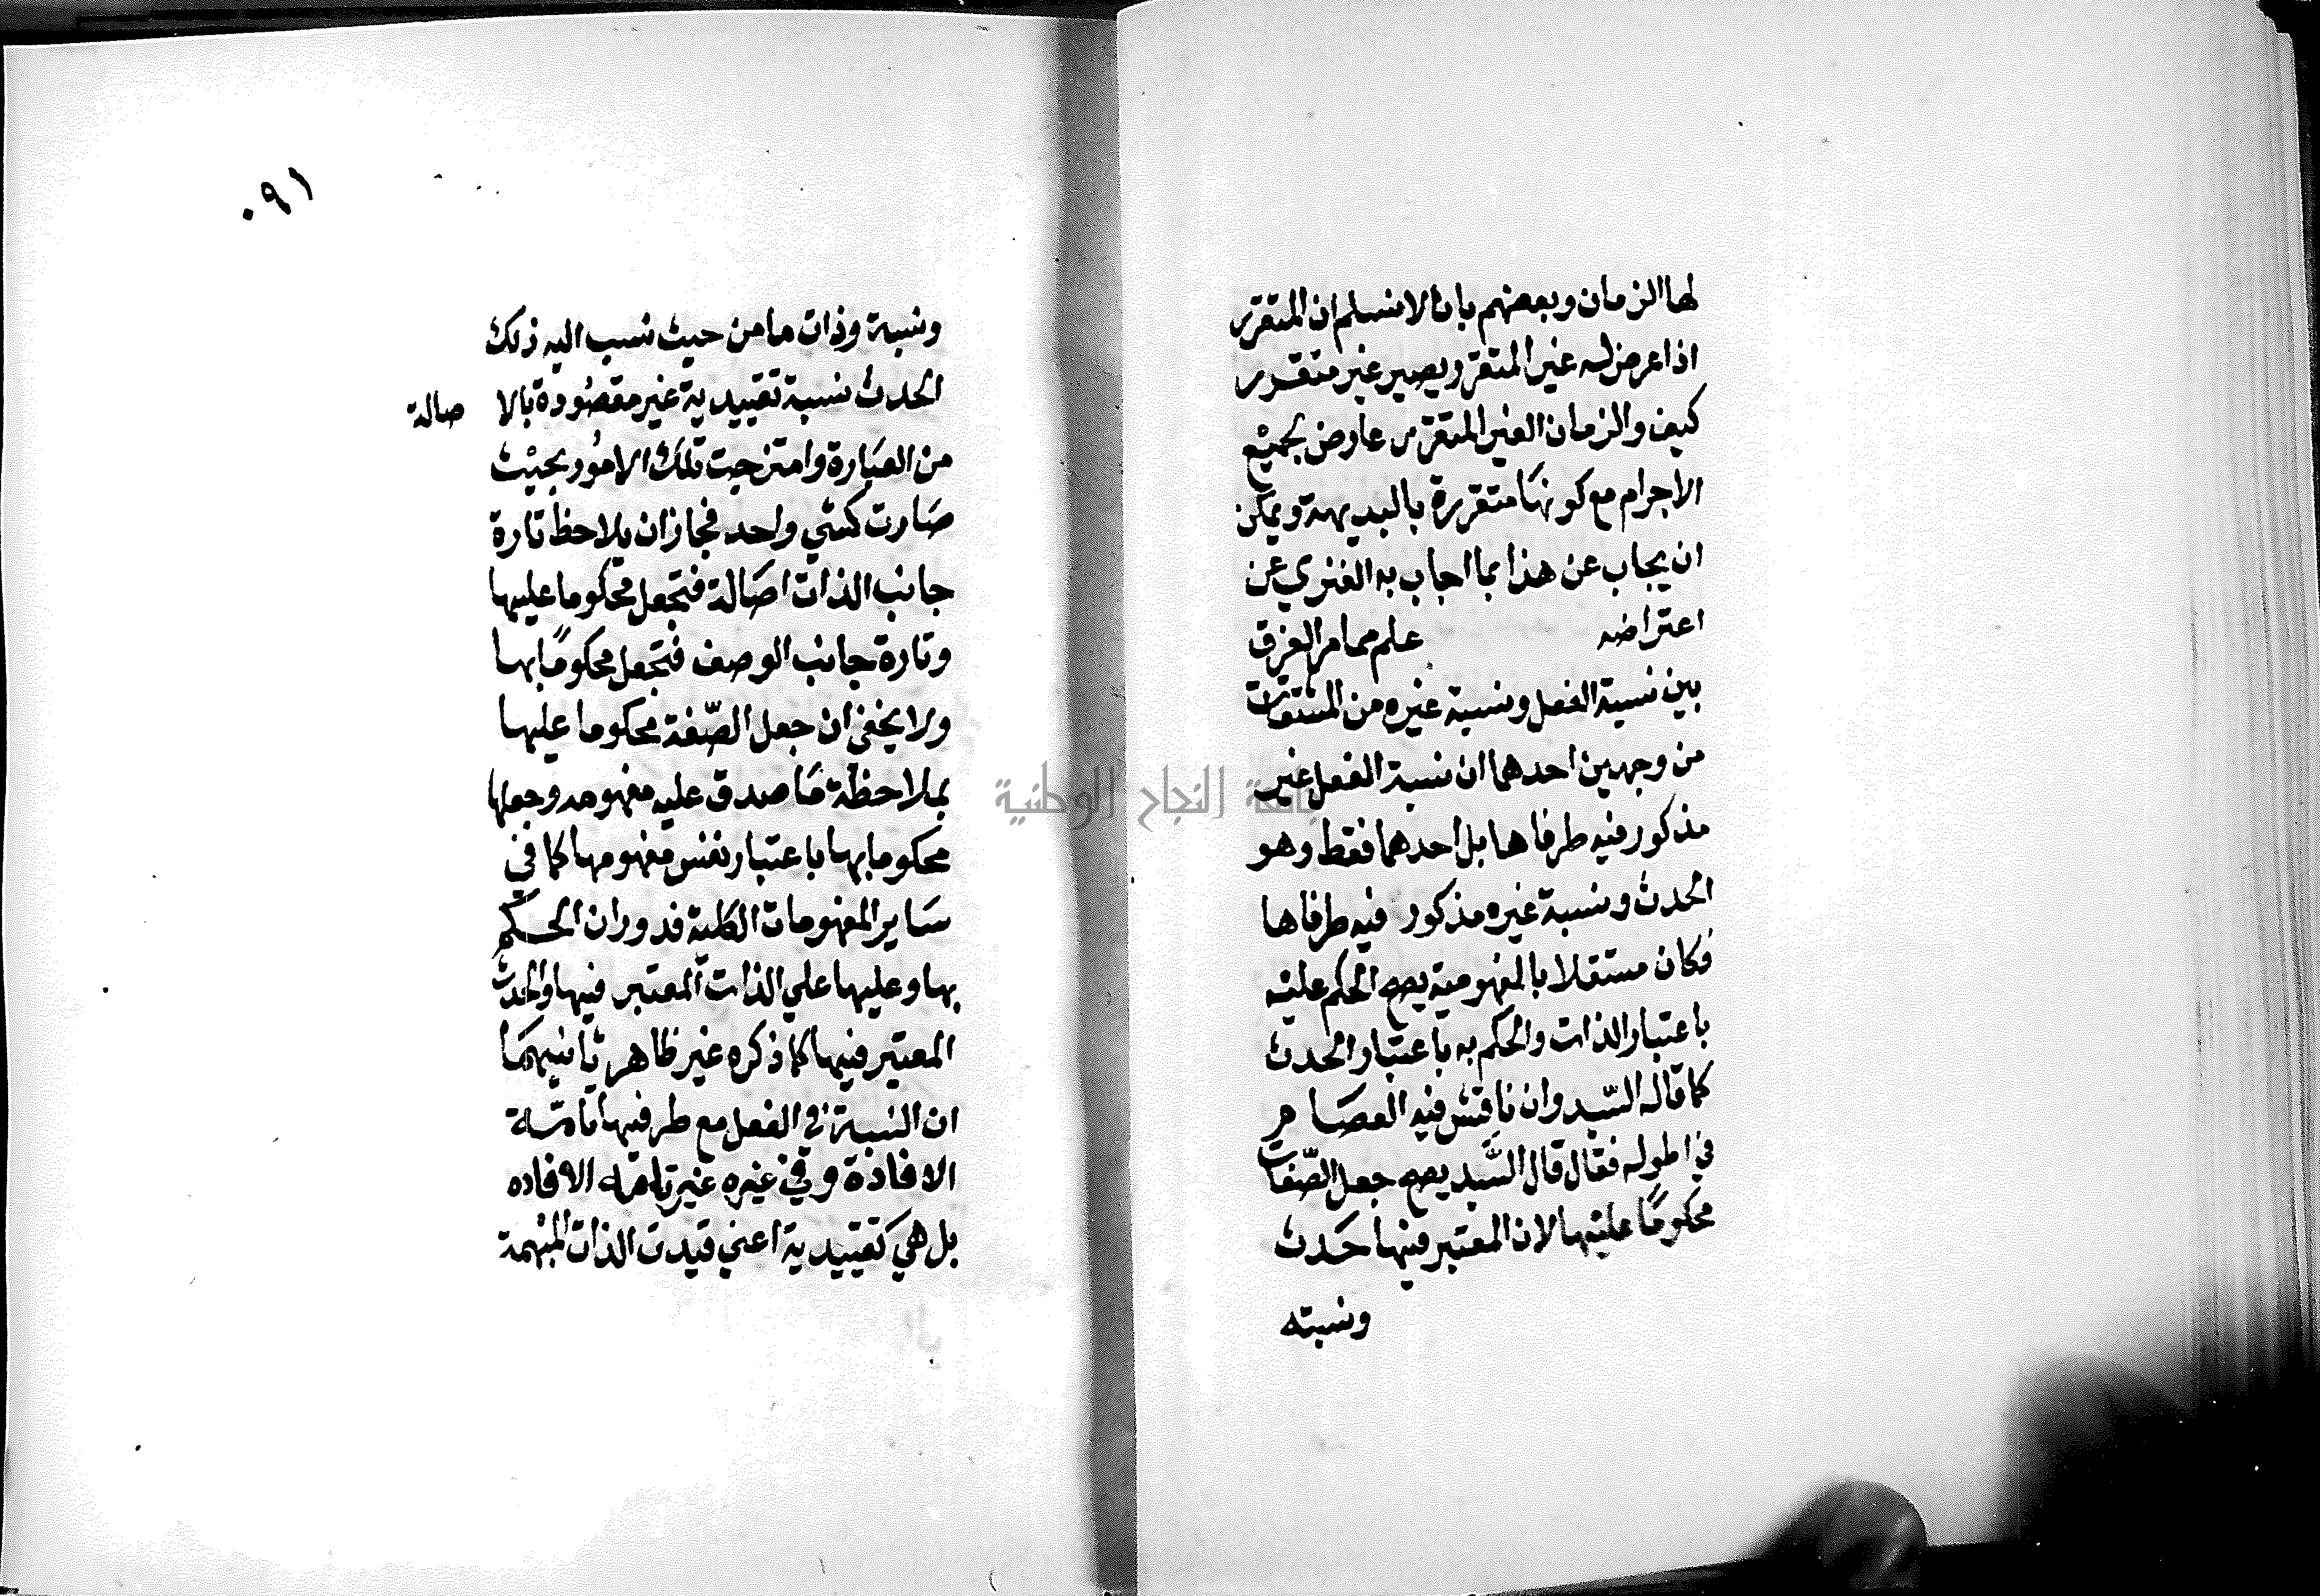 لها الزمان وبعضهم بانا لا نسلم ان المتقرر
اذا عرض له غير المتقرر يصير غير متقرر
كيف والزمان الغير المتقرر عارض لجميع
الاجرام مع كونها متقررة بالبديهة ويمكن
ان يجاب عن هذا بما اجاب به الفنري عن
اعتراضه علم مما مر الفرق
بين نسبة الفعل ونسبة غيره من المشتقات
من وجهين احدهما ان نسبة الفعل غير
مذكور فيه طرفاها بل احدهما فقط وهو
الحدث ونسبة غيره مذكور فيه طرفاها
فكان مستقلا بالمفهومية يصح الحكم عليه
باعتبار الذات والحكم به باعتبار الحدث
كما قاله السيد وان ناقش فيه العصام
في اطوله فقال قال السيد يصح جعل الصفات
محكوما عليها لان المعتبر فيها حدث
ونسبته
٠٩١
ونسبة وذات ما من حيث نسب اليه ذلك
الحدث نسبة تقييدية غير مقصودة بالا صالة
من العبارة وامتزجت تلك الامور بحيث
صارت كشي واحد فجاز ان يلاحظ تارة
جانب الذات اصالة فتجعل محكوما عليها
وتارة جانب الوصف فتجعل محكوما بها
ولا يخفى ان جعل الصفة محكوما عليها
بملاحظة ما صدق عليه مفهومه وجعلها
محكوما بها باعتبار نفس مفهومها كما في
ساير المفهومات الكلية فدوران الحكم
بها وعليها علي الذات المعتبر فيها والحدث
المعتبر فيها كما ذكره غير ظاهر ثانيهما
ان النسبة في الفعل مع طرفيها تامة
الافادة وفي غيره غير تامه الافاده
بل هي تقييدية اعني قيدت الذات المبهمة
جامعة النجاح الوطنية